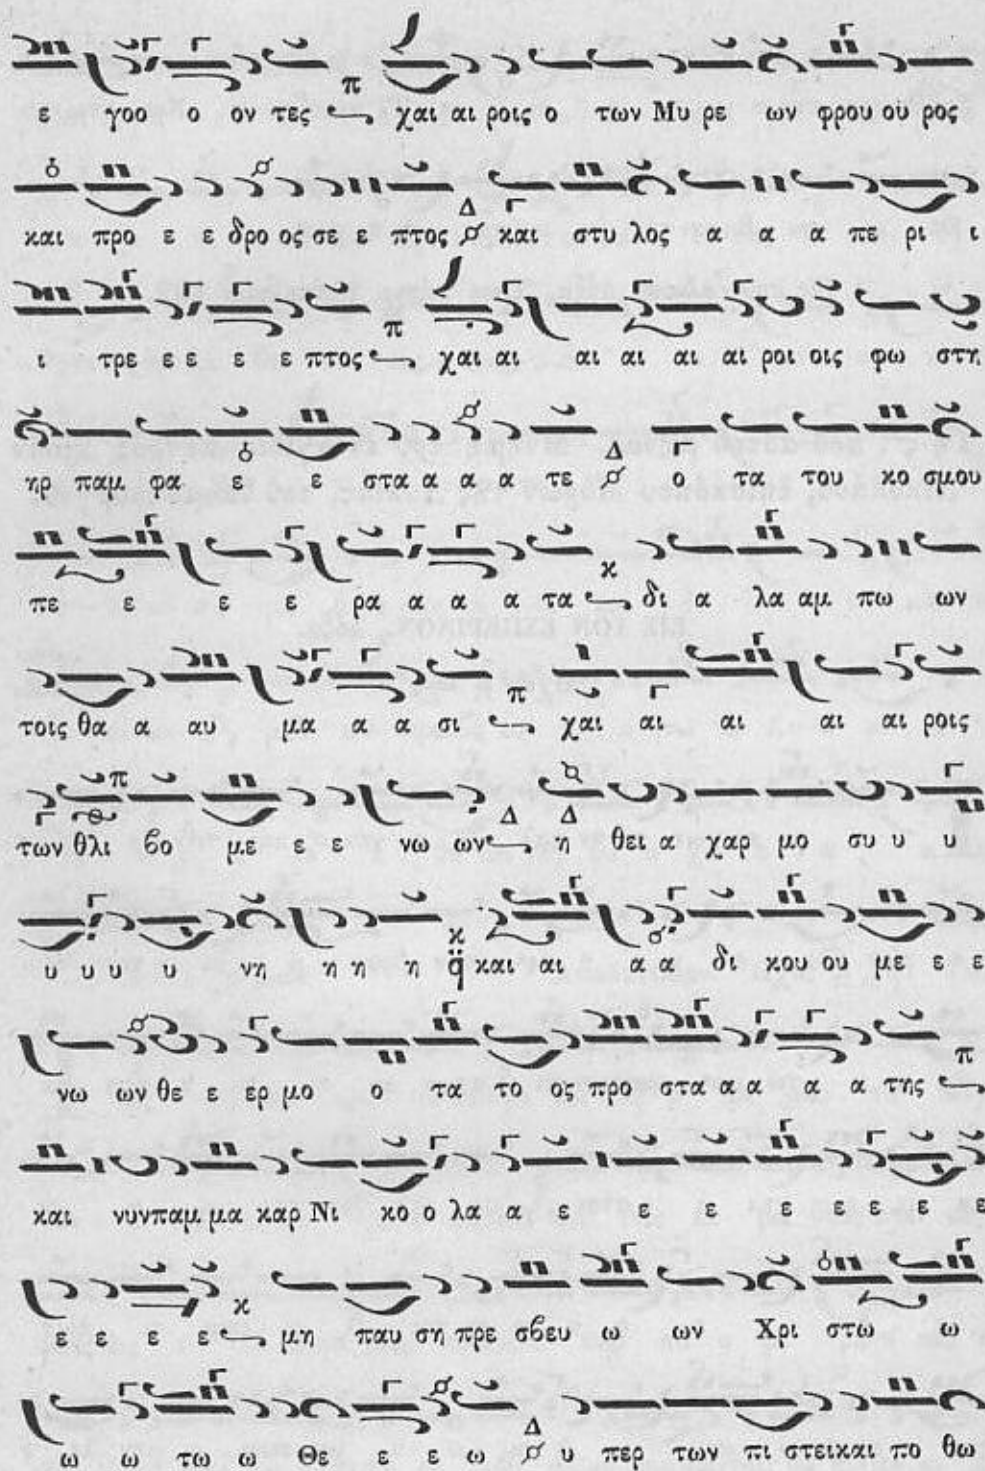 ε γοο ο ον τες π χαι αι ροις ο των Μυ ρε ων φρου ου ρος
και προ ε ε δρο ος σε ε πτος Δ και στυ λος α α α πε ρι ι
ι τρε ε ε ε ε πτος π χαι αι αι αι αι αι ροι οις φω στη
ηρ παμ φα ε ε στα α α α τε Δ ο τα του κο σμου
πε ε ε ε ρα α α α τα κ δι α λα αμ πω ων
τοις θα α αυ μα α α σι π χαι αι αι αι αι ροις
των θλι βο με ε ε νω ων Δ η θει α χαρ μο συ υ υ
υ υ υ υ νη η η η κ q̈ και αι α α δι κου ου με ε ε
νω ων θε ε ερ μο ο τα το ος προ στα α α α α της π
και νυν παμ μα καρ Νι κο ο λα α ε ε ε ε ε ε ε ε
ε ε ε ε κ μη παυ ση πρε σβευ ω ων Χρι στω ω
ω ω τω ω Θε ε ε ω Δ υ περ των πι στει και πο θω